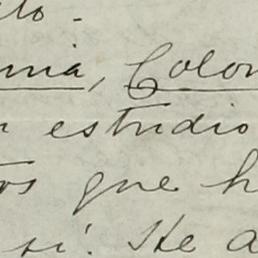 ito.
nia, Colom
n estudio
tos que h
si. He a